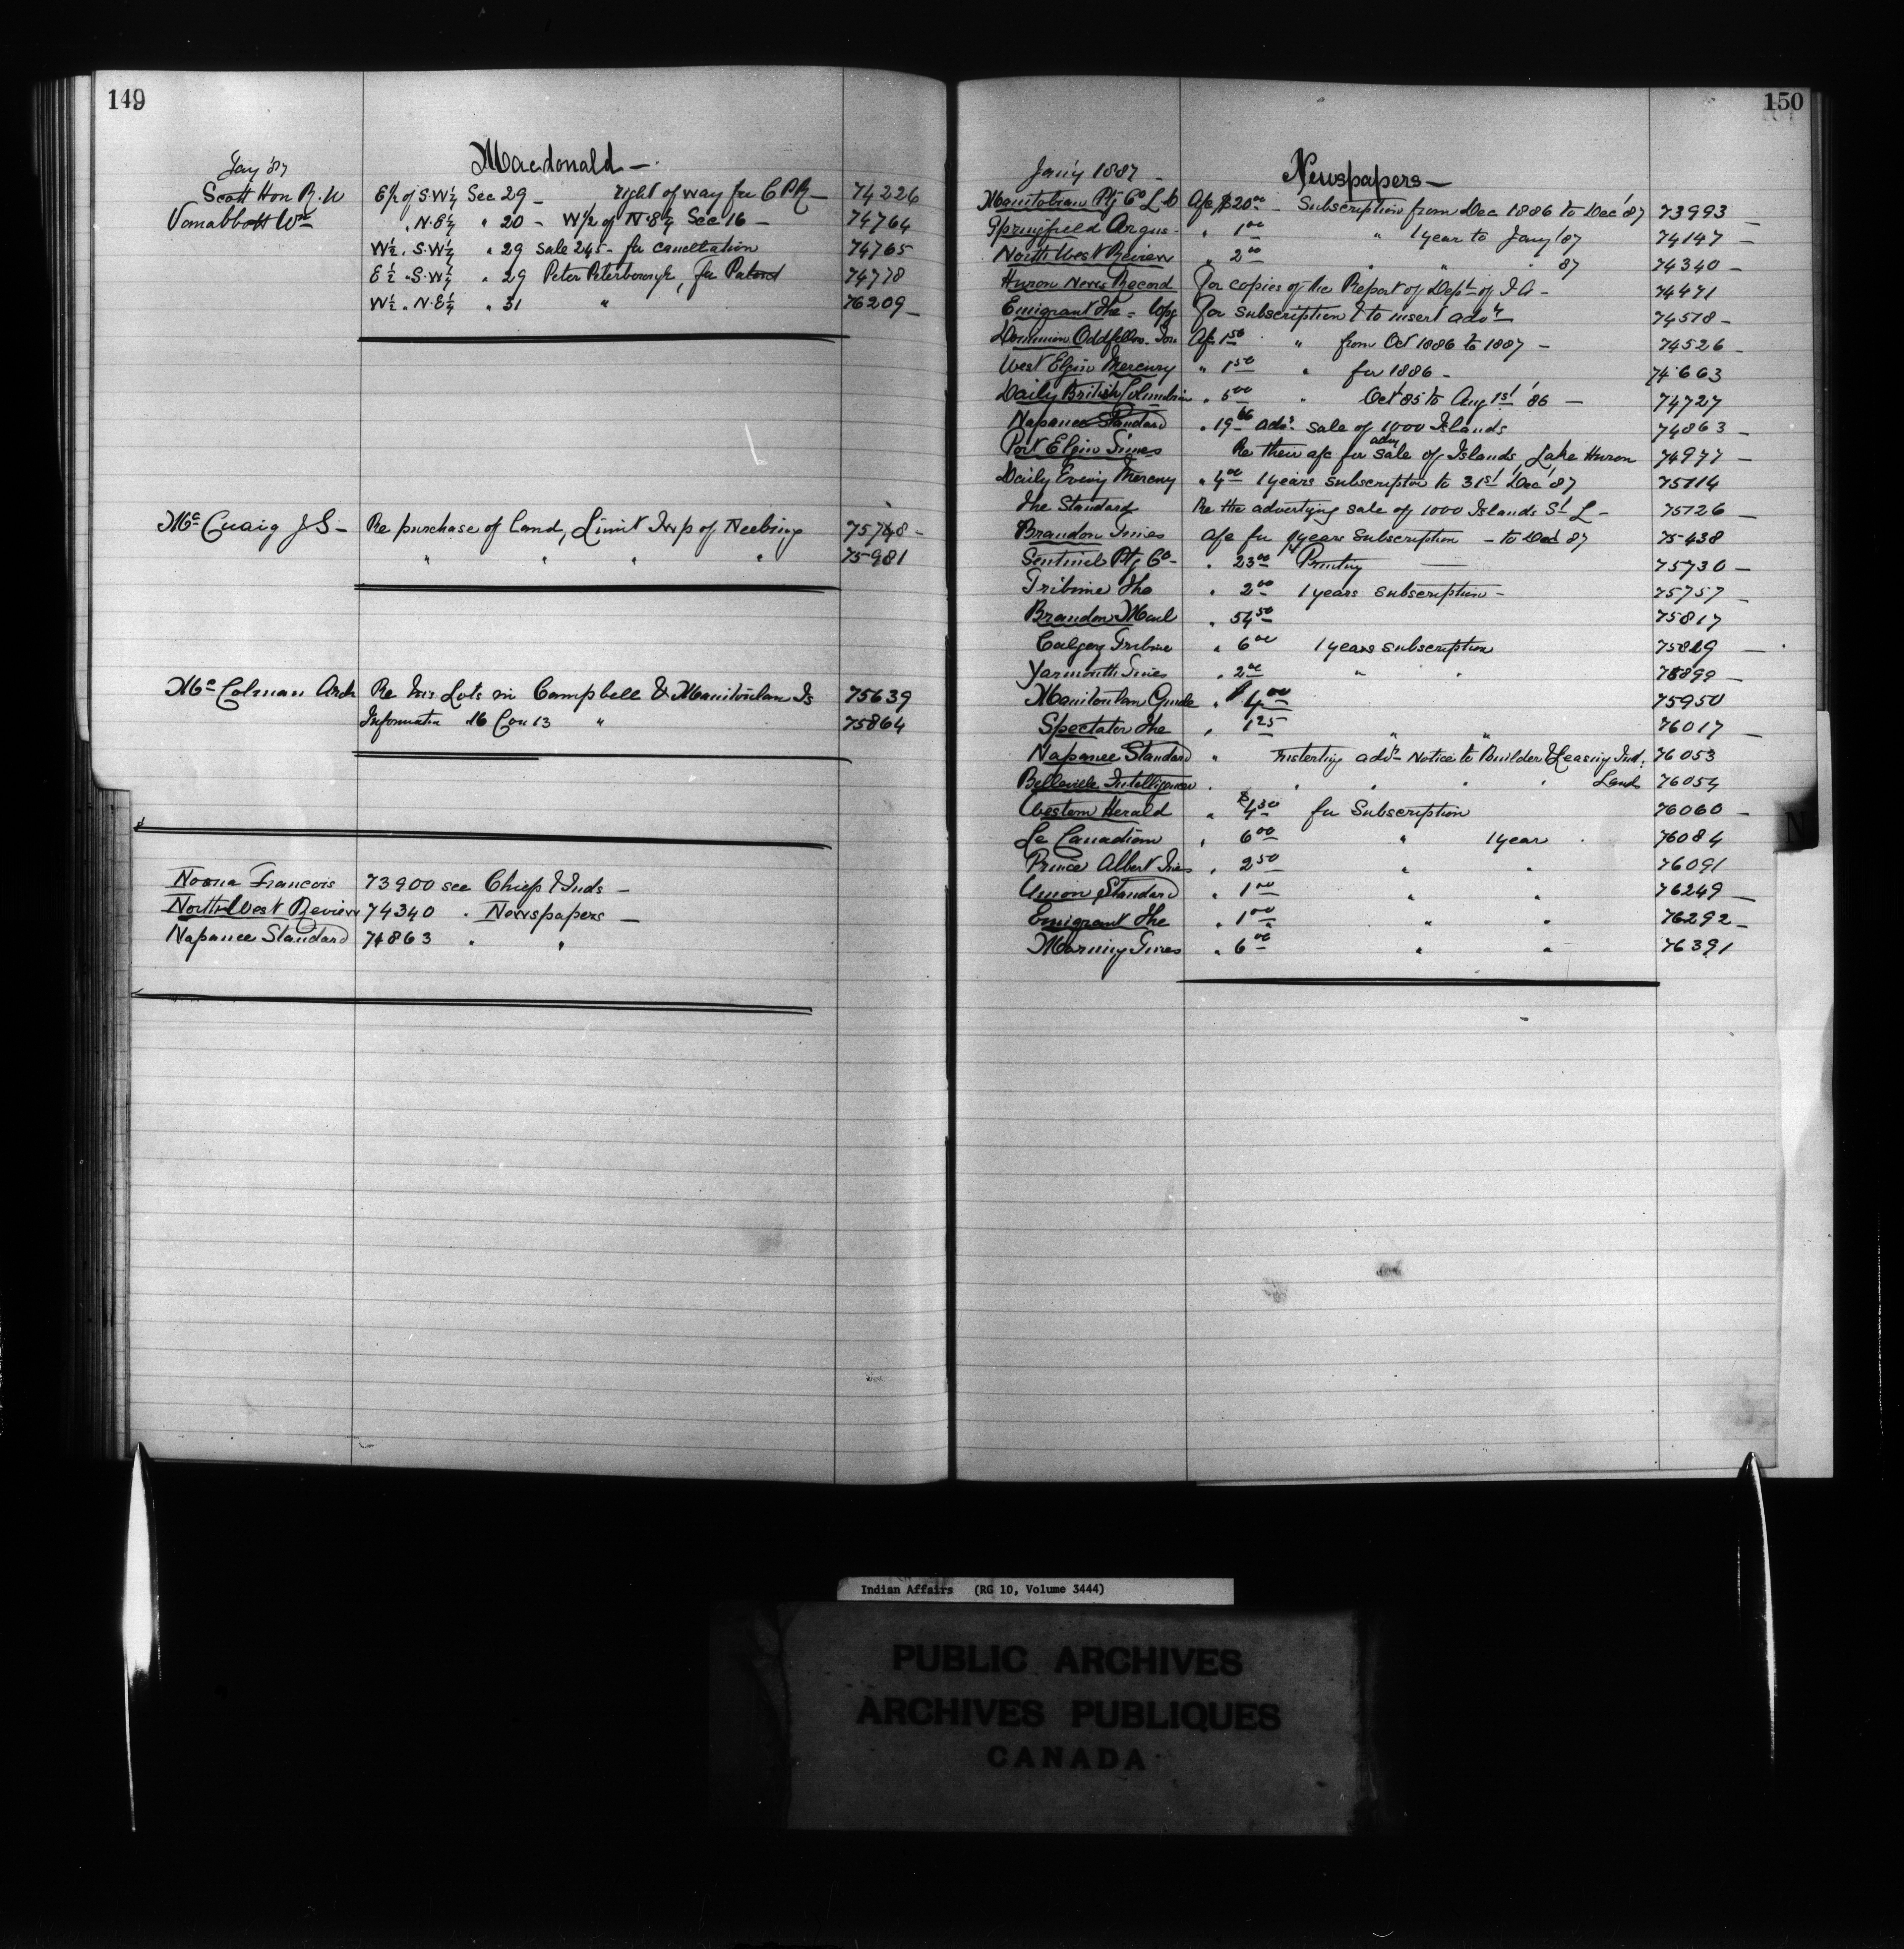 149
Jany '87 Macdonald —
Scott Hon R. W E½ of S.W¼ Sec 29 — right of way for C P R — 74226
Vanabbott Wm " N.E¼ " 20 - W½ of N.E¼ Sec 16 — 74764
W½ . S.W¼ " 29 Sale 245 - for cancellation 74765
E½ . S.W¼ " 29 Peter Peterborough, for Patent 74778
W½ . N.E¼ " 31 " 76209 —
Mc Cuaig J S — Re purchase of land, Limit Twp of Neebing 75748 -
" " " " 75981
Mc Colman Arch Re his Lots in Campbell & Manitoulin Is 75639
Information 16 Con 13 " 75864
Noona Francois 73900 see Chiefs & Inds —
North West Review 74340 " Newspapers —
Napanee Standard 74863 " "
150
Jan'y 1887 — Newspapers —
Manitoban Ptg Co Ld A/c $20.00 — Subscription from Dec 1886 to Dec '87 73993 —
Springfield Argus - " 1.00 " 1 year to Jany '87 74147 —
North West Review " 2.00 " " " 87 74340 —
Huron News Record For copies of the Report of Dept of I A — 74471
Emigrant The = Wpg For subscription & to insert advt 74518 —
Dominion Oddfellow Jou A/c 1.50 " from Oct 1886 to 1887 — 74526 —
West Elgin Mercury " 1.50 " for 1886 — 74663
Daily British Columbian " 5.00 " Oct 85 to Aug 1st '86 — 74727
Napanee Standard " 19.66 advt sale of 1000 Islands 74863 —
Port Elgin Times Re their a/c for adv sale of Islands, Lake Huron 74977 —
Daily Eveng Mercury " 4.00 1 years subscription to 31st Dec '87 75114
The Standard Re the advertizing sale of 1000 Islands St L — 75126 —
Brandon Times A/c for 1 years subscription — to Dec 87 75438
Sentinel Ptg Co — " 23.00 Printing — 75730 —
Tribune The " 2.00 1 years subscription — 75757 —
Brandon Mail " 54.50 75817
Calgary Tribune " 6.00 1 years subscription 75819 —
Yarmouth Times " 2.00 " " 75899 —
Manitoulin Guide " $4.00 75950
Spectator The " 1.25 " " 76017 —
Napanee Standard " Inserting advt Notice to Builder & Leasing Ind. 76053
Belleville Intelligencer " " " " " Land 76054
Western Herald " $4.30 for Subscription 76060 —
Le Canadien " 6.00 " 1 year " 76084
Prince Albert Times " 2.50 " " 76091
Union Standard " 1.00 " " 76249 —
Emigrant The " 1.00 " " 76292 —
Morning Times " 6.00 " " 76391
N
Indian Affairs (RG 10, Volume 3444)
PUBLIC ARCHIVES
ARCHIVES PUBLIQUES
CANADA